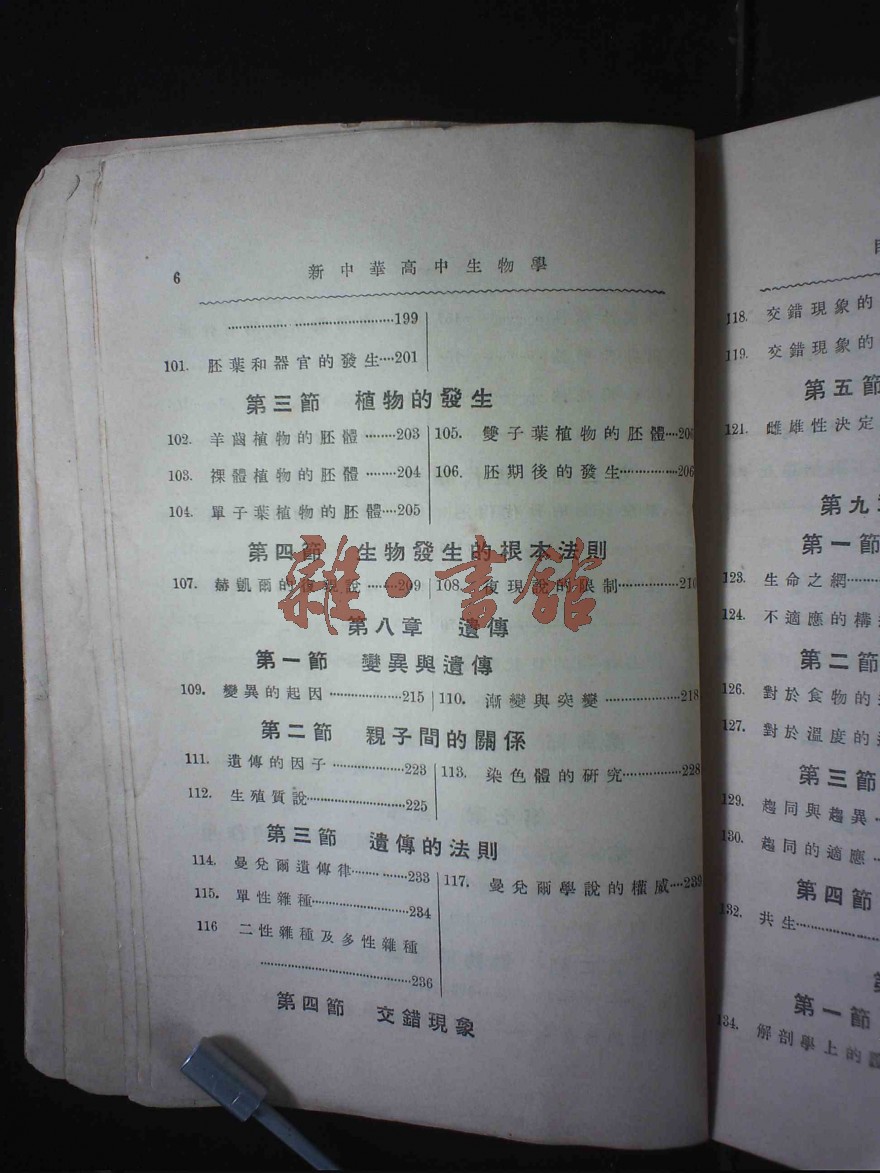 6
新中華高中生物學
…………………………199
101. 胚葉和器官的發生…201
第三節 植物的發生
102. 羊齒植物的胚體………203
103. 裸體植物的胚體………204
104. 單子葉植物的胚體…205
105. 雙子葉植物的胚體…206
106. 胚期後的發生……………206
第四節 生物發生的根本法則
107. 赫凱爾的復現說………209
108. 復現說的限制……………210
第八章 遺傳
第一節 變異與遺傳
109. 變異的起因………………215
110. 漸變與突變………………218
第二節 親子間的關係
111. 遺傳的因子………………223
112. 生殖質說……………………225
113. 染色體的研究……………228
第三節 遺傳的法則
114. 曼兌爾遺傳律……………233
115. 單性雜種……………………234
116 二性雜種及多性雜種
…………………………………236
117. 曼兌爾學說的權威…239
第四節 交錯現象
118. 交錯現象的
119. 交錯現象的
第五節
121. 雌雄性決定
第九
第一節
123. 生命之網
124. 不適應的構
第二節
126. 對於食物的
127. 對於溫度的
第三節
129. 趨同與趨異
130. 趨同的適應
第四節
132. 共生
第一節
134. 解剖學上的
雜·書館